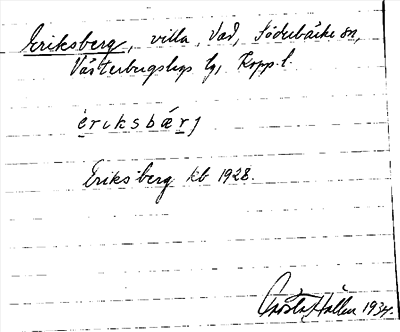 Eriksberg, villa, Vad, Söderbärke sn,
Västerbergslags lg, Kopp. l.
ériksbærj
Eriksberg kb 1928.
Gösta Hallén 1934.